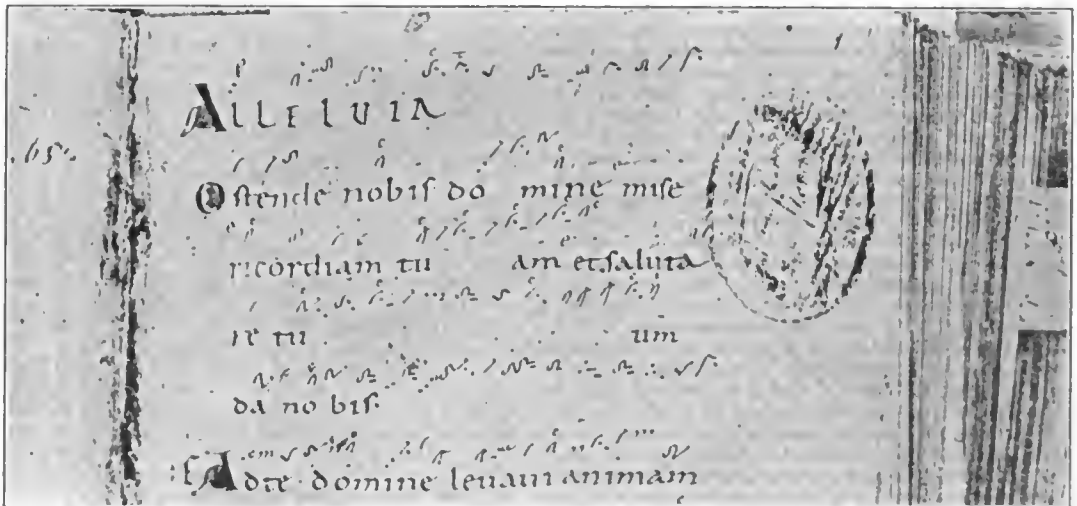 ALLELUIA
Ostende nobis do mine mise
ricordiam tu am et saluta
re tu um
da no bis.
Adte domine levavi animam